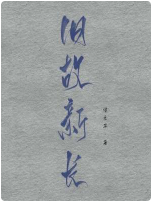 旧故新长
著